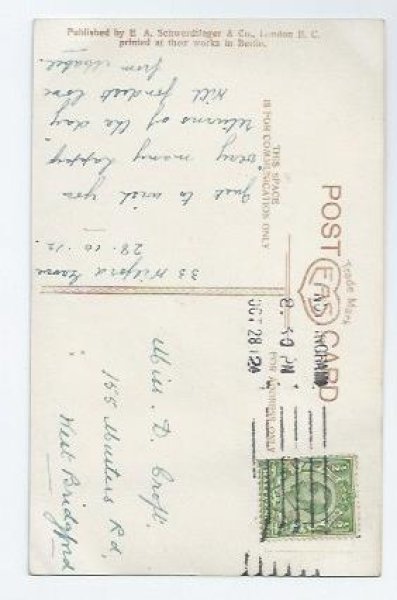 Published by E. A. Schwerdtfeger & Co., London E. C.
printed at their works in Berlin.
POST CARD
EAS
Trade Mark
THIS SPACE
IS FOR COMMUNICATION ONLY
33 Wilford Grove
28. 10. 12.
Just to wish you
very many happy
returns of the day
With fondest love
from Mabel.
NOTTINGHAM
8.30 PM
OCT 28 12
FOR ADDRESS ONLY
Miss. D. Croft.
155 Musters Rd,
West Bridgford